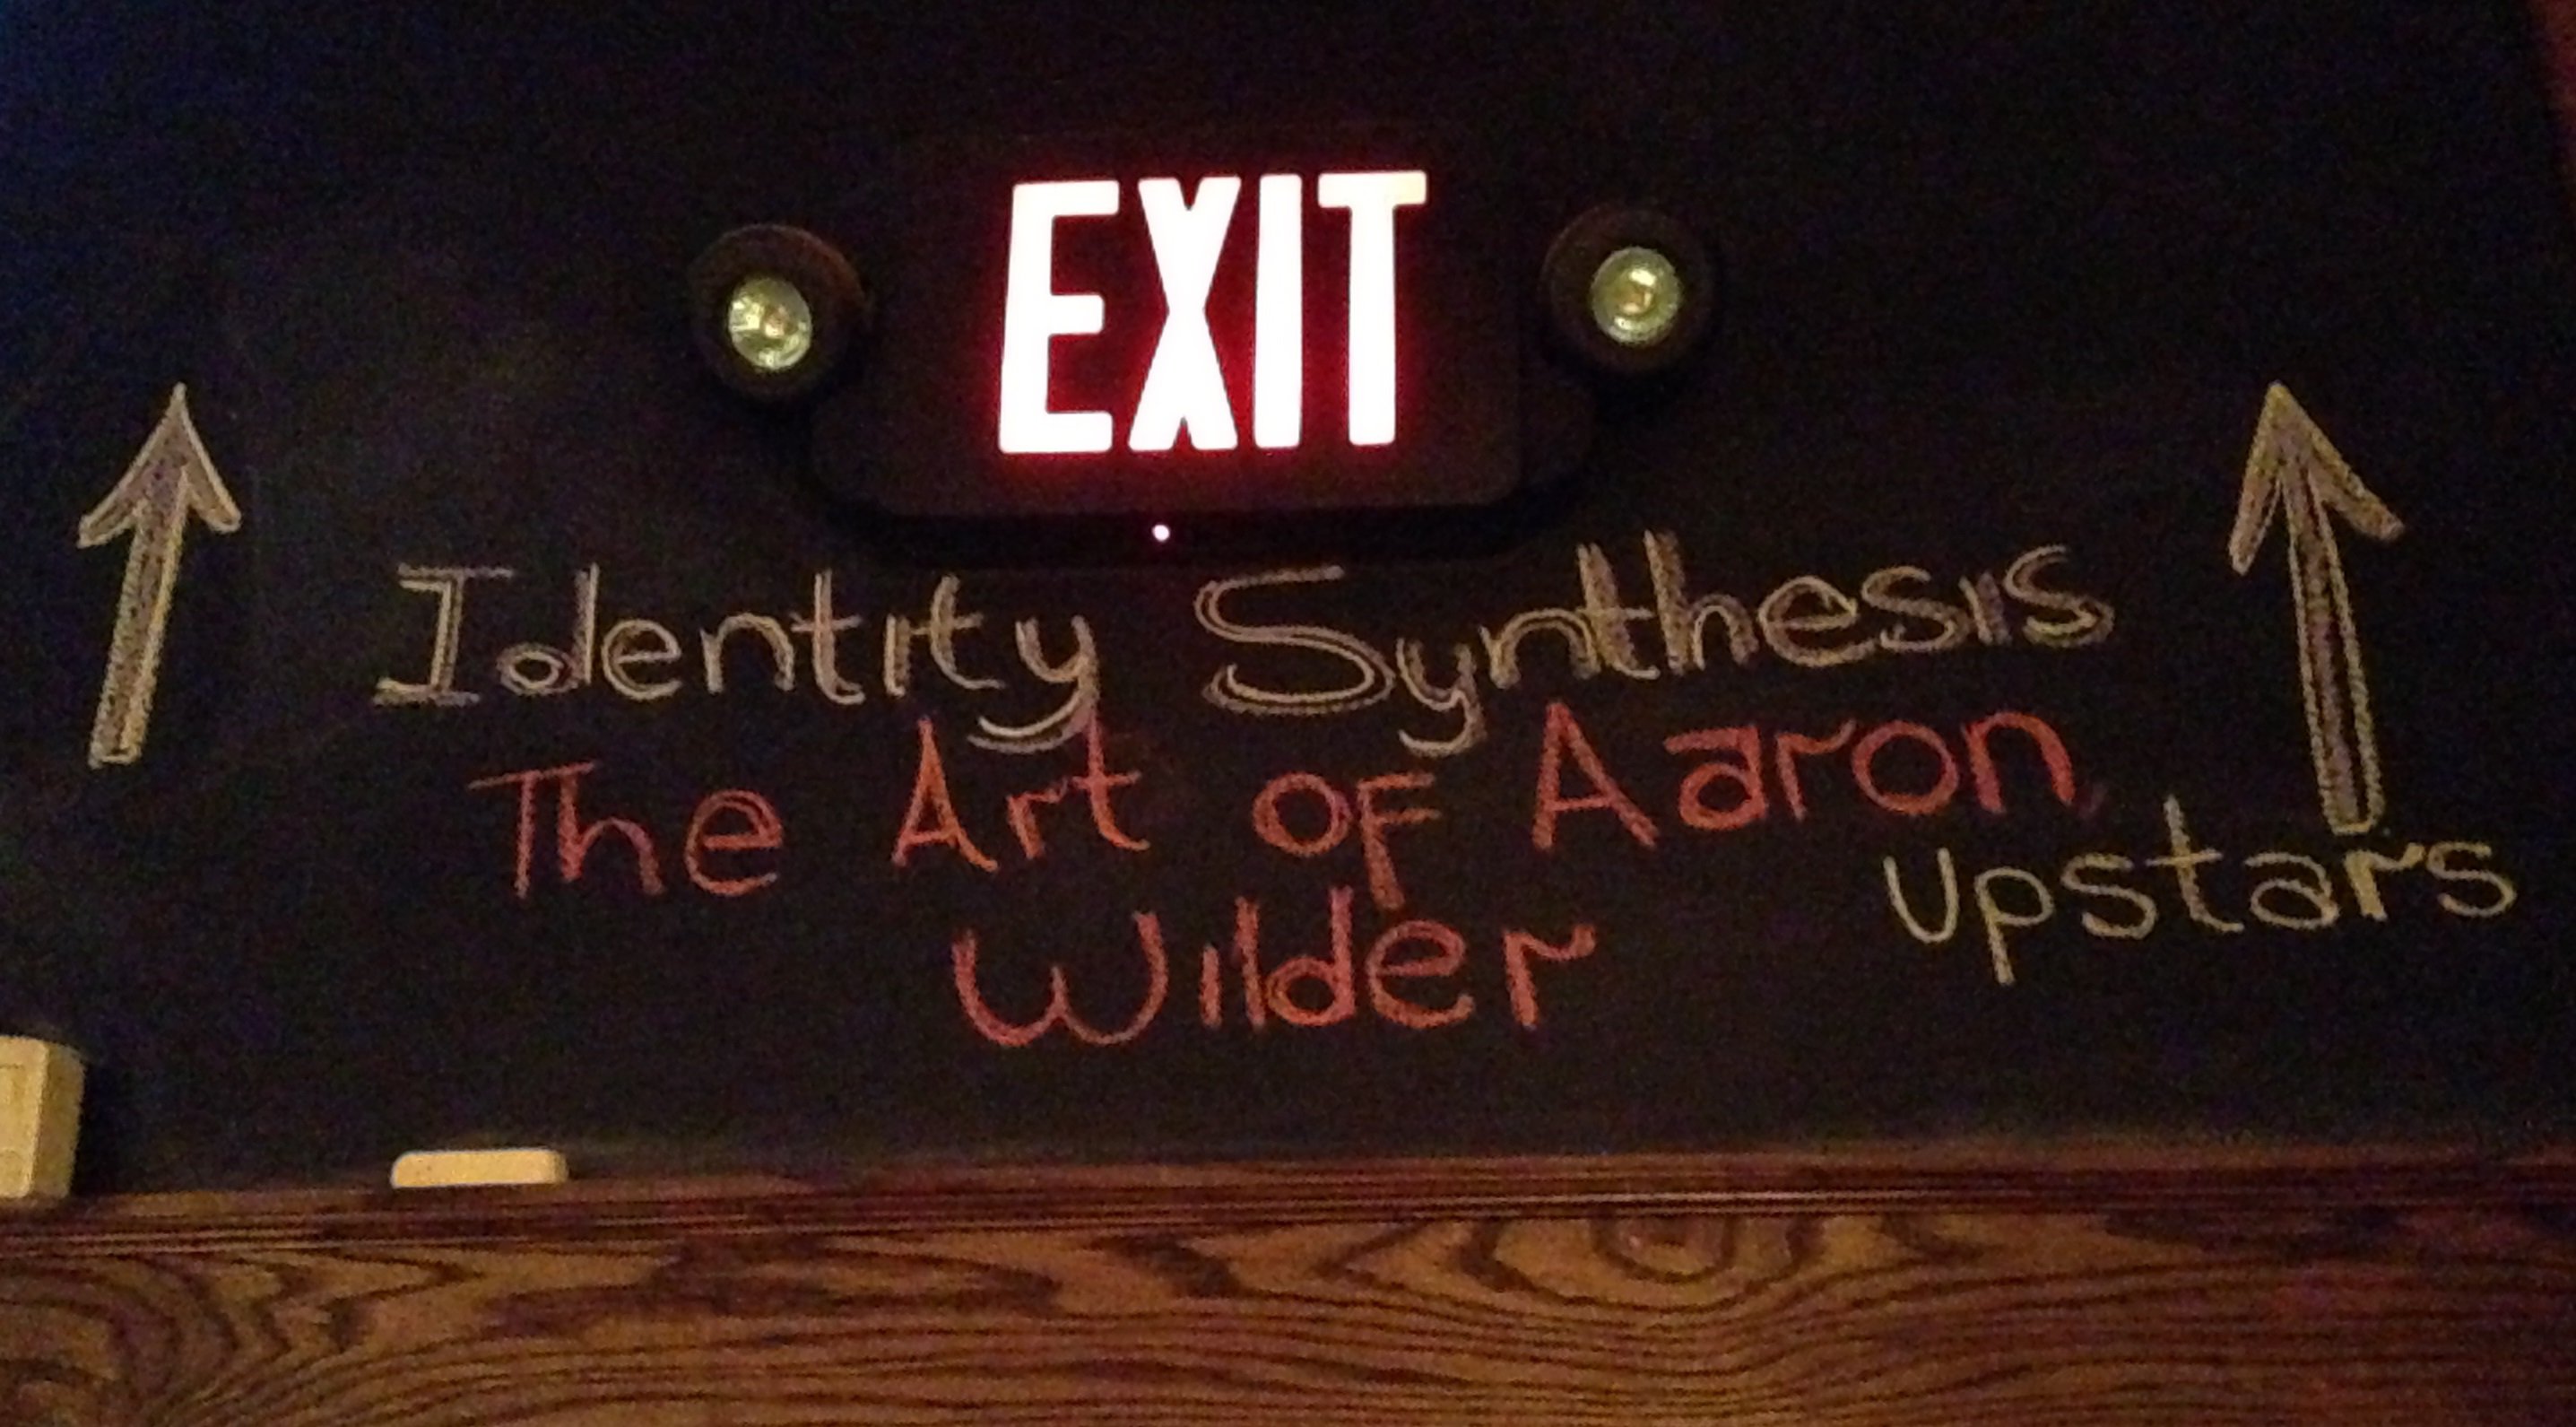 EXIT
Identity Synthesis
The Art of Aaron
Wilder
upstars